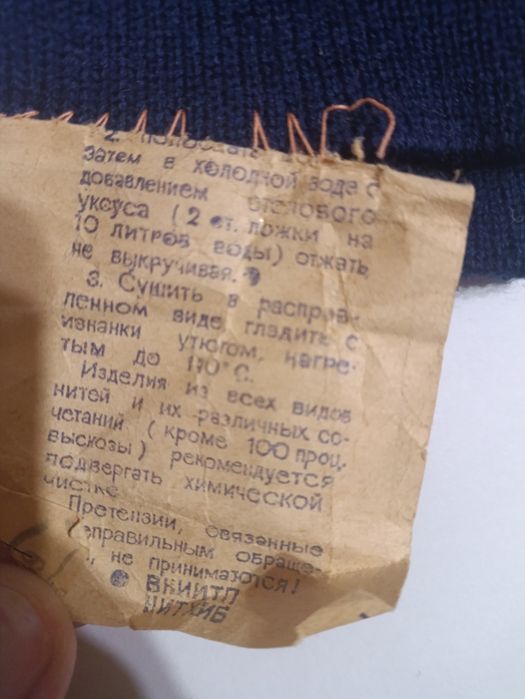 2. Полоскать
затем в холодной воде с
добавлением столового
уксуса (2 ст. ложки на
10 литров воды) отжать,
не выкручивая.
3. Сушить в расправ-
ленном виде гладить с
изнанки утюгом, нагре-
тым до 110°С.
Изделия из всех видов
нитей и их различных со-
четаний (кроме 100 проц.
вискозы) рекомендуется
подвергать химической
чистке
Претензии, связанные
неправильным обраще-
не принимаются!
ВНИИТП